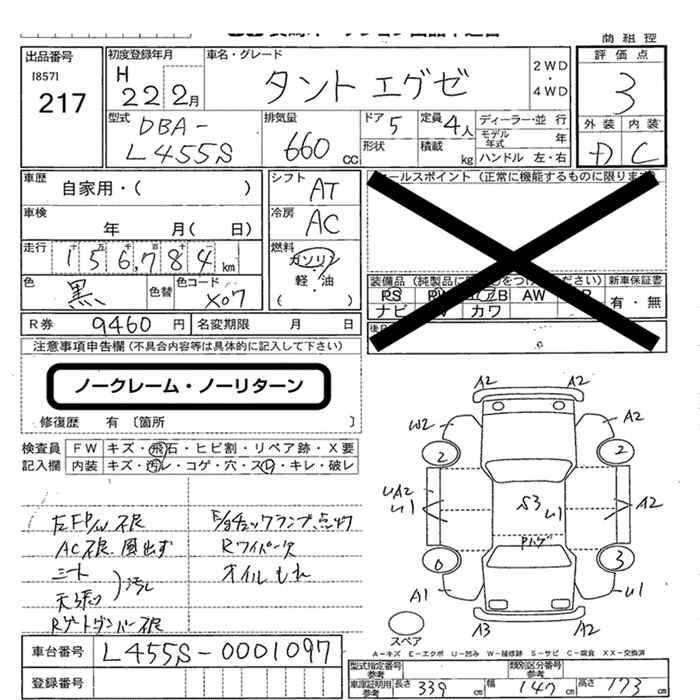 商 組 控
出品番号
[857]
217
初度登録年月
H 22 2月
車名・グレード
タント エグゼ
2WD
・
4WD
評 価 点
3
型式
DBA-
L455S
排気量
660 CC
ドア 5
形状
定員 4人
積載 kg
ディーラー・並 行
モデル年式 年
ハンドル 左・右
外 装 内 装
D C
車歴
自家用・( )
シフト AT
車検
年 月( 日)
冷房 AC
走行 十 五 千 百 十 一
1 5 6,7 8 4 km
燃料
ガソリン
軽 ・ 油
( )
色
黒 色替
色コード
X07
ールスポイント (正常に機能するものに限ります
装備品 (純製品に をつけ ください) 新車保証書
PS AW
ナビ カワ
有・無
R券 9460 円 名変期限 月 日
注意事項申告欄 (不具合内容等は具体的に記入して下さい)
ノークレーム・ノーリターン
修復歴 有 〔箇所 〕
検査員 FW キズ・飛石・ヒビ割・リペア跡・X要
記入欄 内装 キズ・汚レ・コゲ・穴・スレ・キレ・破レ
左FP/W不良
E/gチェックランプ、点灯
AC不良 風出ず
Rワイパー欠
シート
天張り
汚れ
オイルもれ
Rゲートダンパー不良
A2 A2
W2 A2
2 2
UA2
U1
S3 U1
A2
Pハゲ
0 3
A1 U1
A3 A2
スペア
A−キズ E−エクボ U−凹み W−補修跡 S−サビ C−腐食 XX−交換済
車台番号 L455S-0001097
登録番号
型式指定番号
参考
類別区分番号
参考
車庫証明用
参考
長さ 339 cm 幅 147 cm 高さ 173 cm